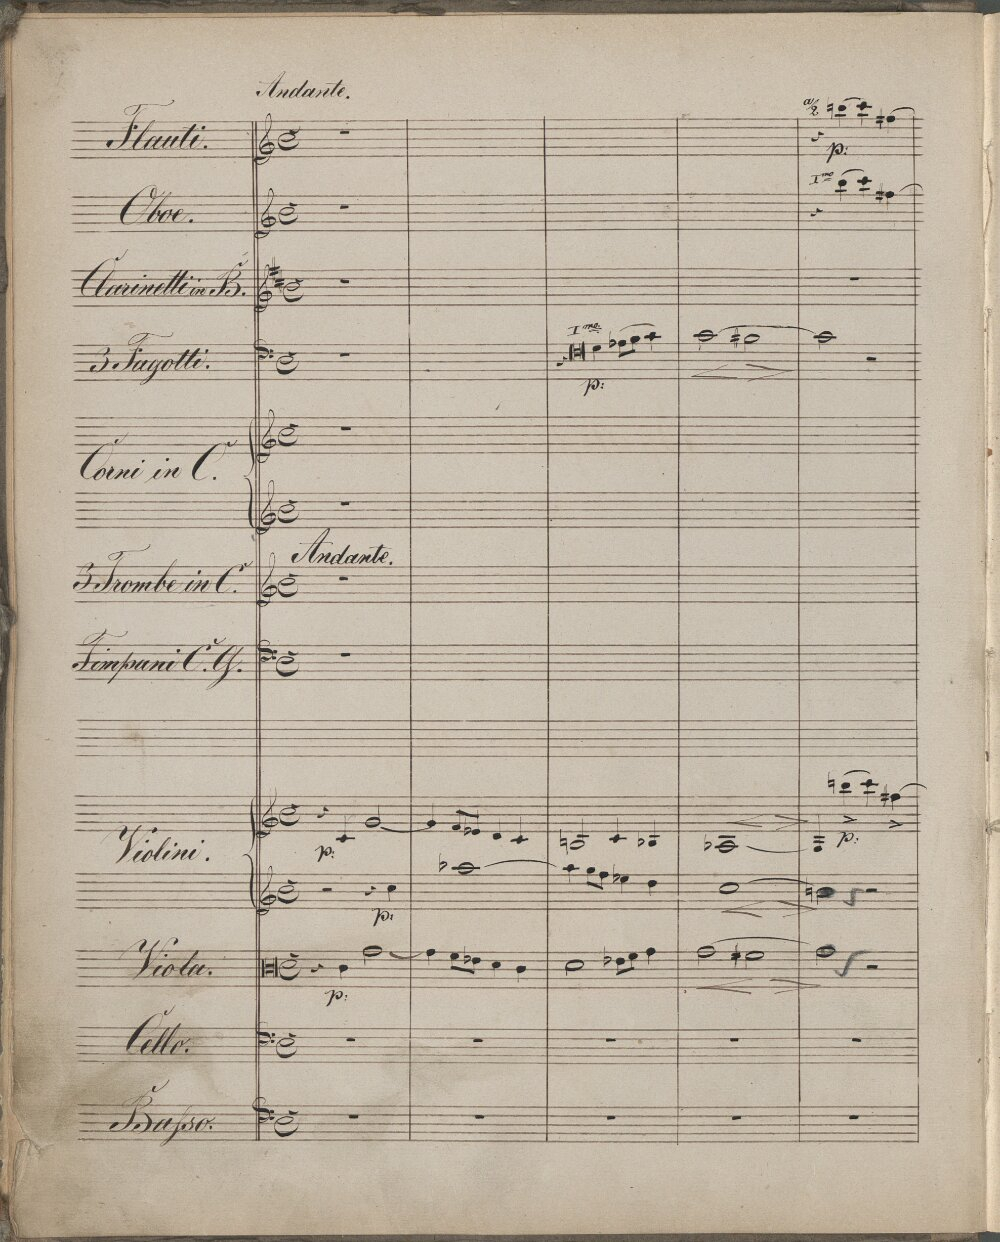 Andante.
Flauti.
a/2
p:
Oboe.
Imo
Clarinetti in B.
3 Fagotti.
Imo.
p:
Corni in C.
Andante.
3 Trombe in C.
Timpani C. G.
Violini.
p:
p:
p:
Viola.
p:
Cello.
Basso.